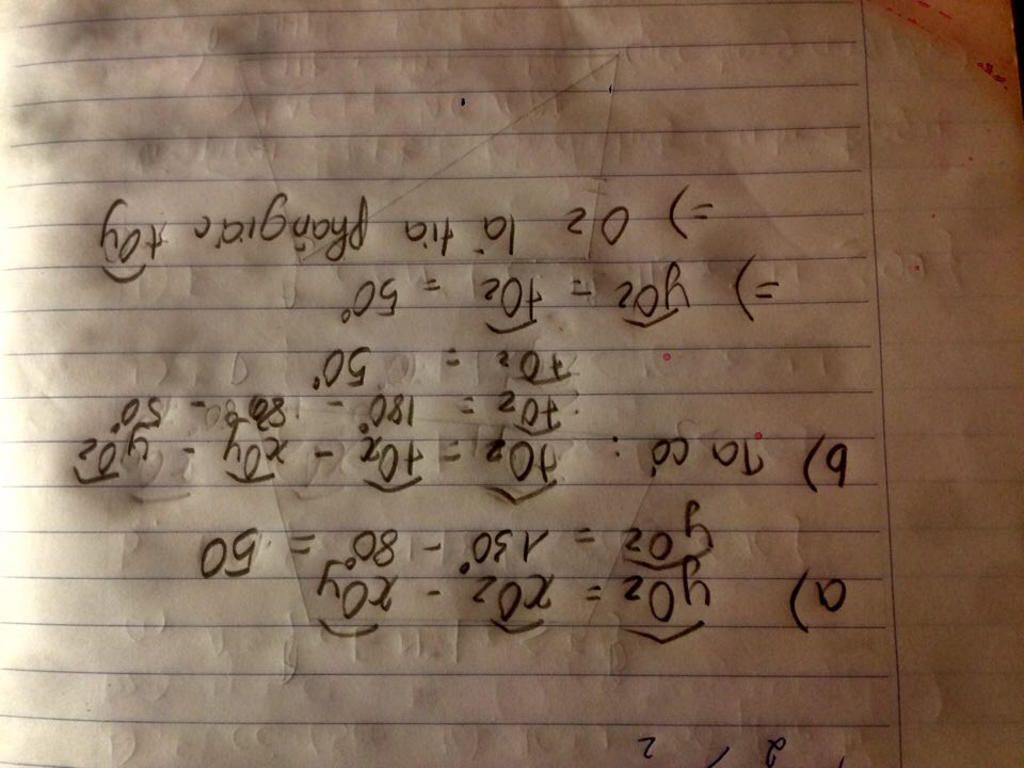 a) yOz = xOz - xOy
yOz = 130° - 80° = 50
b) Ta có : tOz = tOx - xOy - yOz
tOz = 180° - 80° - 50°
tOz = 50°
=) yOz = tOz = 50°
=) Oz là tia phân giác tOy